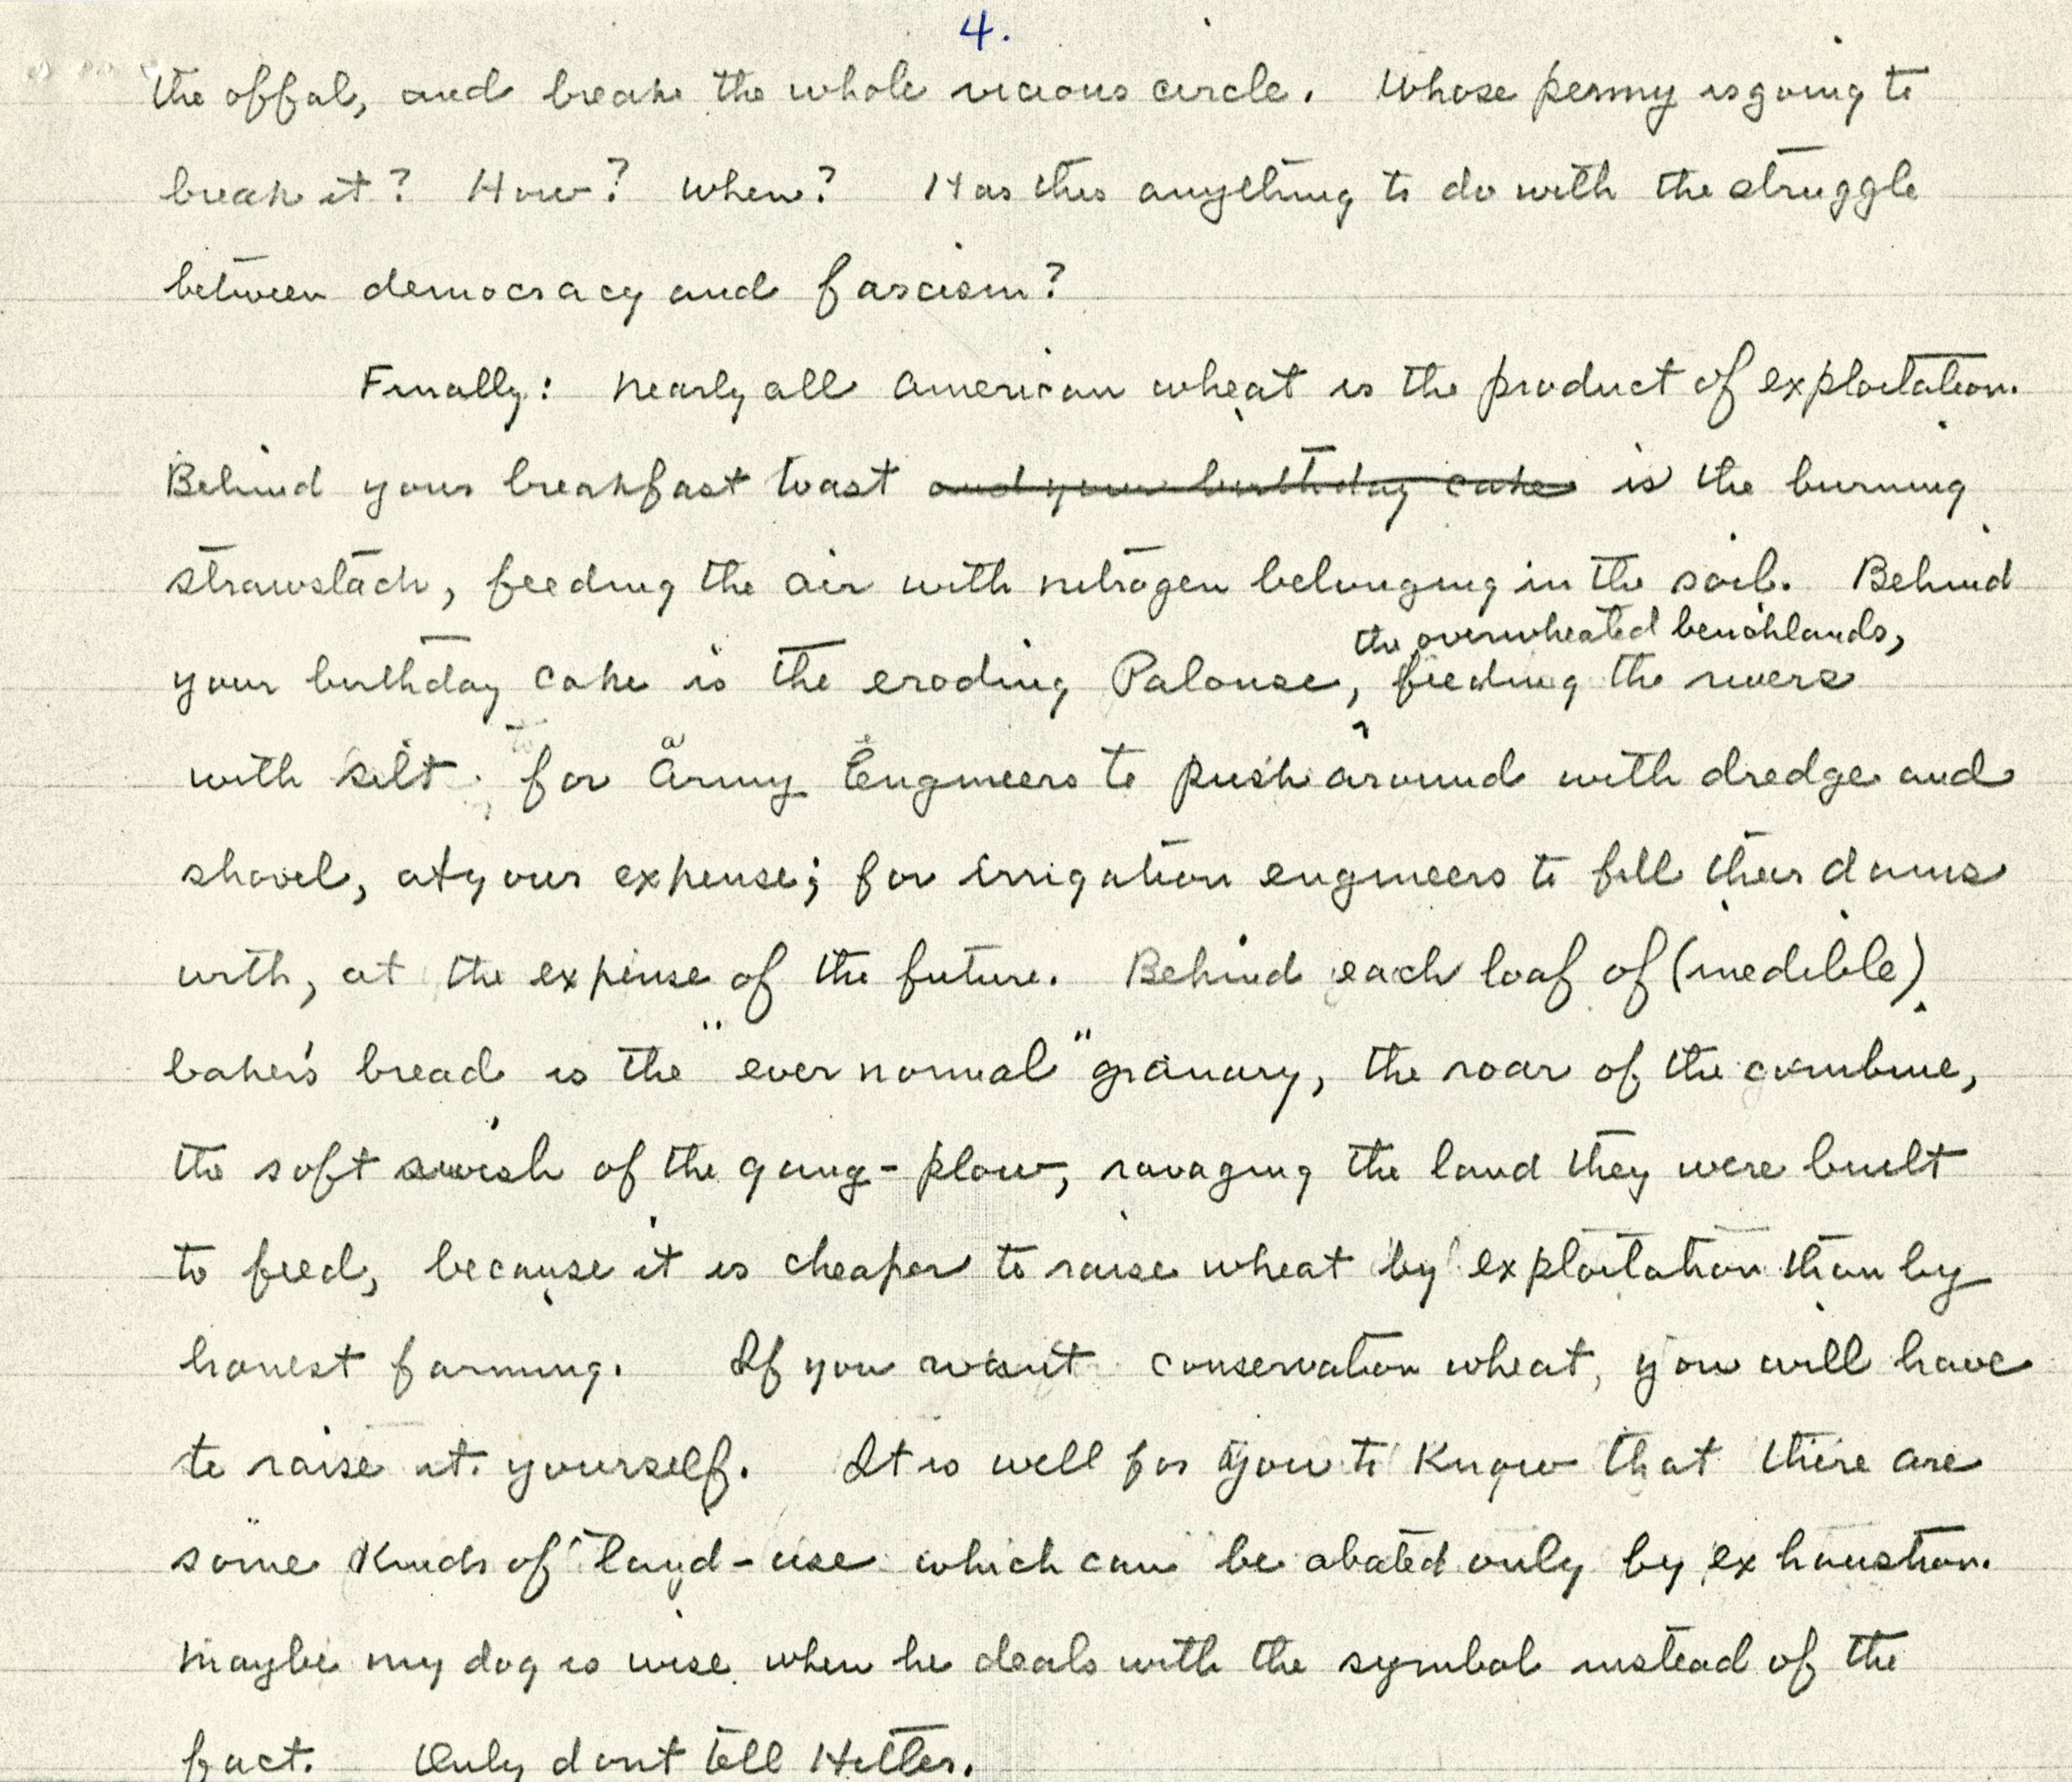 4.
the offal, and break the whole vicious circle. Whose penny is going to
break it? How? When? Has this anything to do with the struggle
between democracy and fascism?
Finally: nearly all American wheat is the product of exploitation.
Behind your breakfast toast and your birthday cake is the burning
strawstack, feeding the air with nitrogen belonging in the soil. Behind
the overwheated benchlands,
your birthday cake is the eroding Palouse, feeding the rivers
with silt for army Engineers to push around with dredge and
shovel, at your expense; for irrigation engineers to fill their dams
with, at the expense of the future. Behind each loaf of (inedible)
baker's bread is the "ever normal" granary, the roar of the combine,
the soft swish of the gang-plow, ravaging the land they were built
to feed, because it is cheaper to raise wheat by exploitation than by
honest farming. If you want conservation wheat, you will have
to raise it yourself. It is well for you to know that there are
some kinds of land-use which can be abated only by exhaustion.
Maybe my dog is wise when he deals with the symbol instead of the
fact. Only dont tell Hitler.